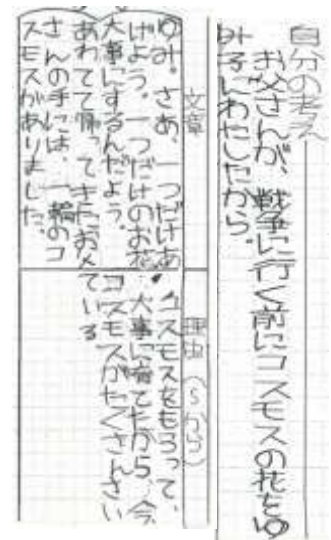 自分の考え
お父さんが、戦争に行く前にコスモスの花をゆ
み子にわたしたから。
文章
ゆみ。さあ、一つだけあ
げよう。一つだけのお花
大事にするんだよう。
あわてて帰ってきたお父
さんの手には、一輪のコ
スモスがありました。
理由(〜から)
コスモスをもらって、
大事に育てたから、今
コスモスがたくさんさい
ている